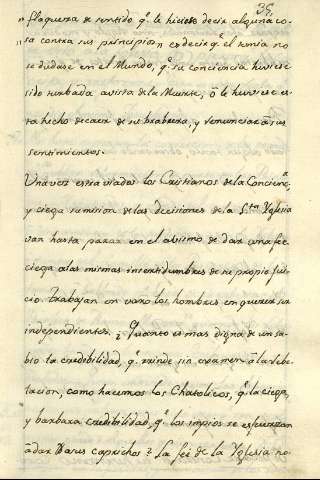 39,
" flaqueza de sentido q.e le hiciese decir alguna co-
" sa contra sus principios " es decir q.e el temia no
se dudase en el Mundo, q.e su conciencia huviese
sido turbada a vista de la Muerte, ó le huviese es-
ta hecho decaer de su brabeza, y renunciar à sus
sentimientos.
Una vez extraviados los Cristianos de la Concienc.a
y ciega sumision de las decisiones de la S.ta Yglesia
van hasta parar en el avismo de dar una fee
ciega a las mismas incertidumbres de su propio jui-
cio. Trabajan en vano los hombres en querer ser
independientes. ¿ Quanto es mas digna de un sa-
bio la credibilidad, q.e rinde sin examen à la Rebe-
lacion, como hacemos los Chatolicos, q.e la ciega,
y barbara credibilidad, q.e los impios se esfuerzan
à dar à sus caprichos ? La feé de la Yglesia no